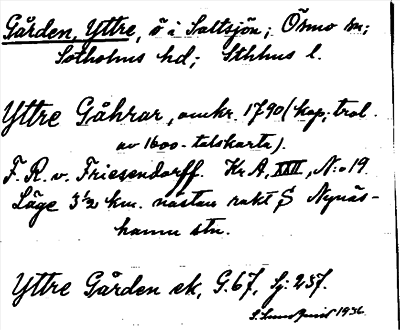 Gården, Yttre, ö i Saltsjön; Ösmo sn;
Sotholms hd; Sthlms l.
Yttre Gåhrar, omkr. 1790 (kop. trol.
av 1600-talskarta).
F. R. v. Friesendorff. Kr A, XXII, N:o 19.
Läge 3½ km. nästan rakt S Nynäs-
hamn stn.
Yttre Gården ek, G. 67, Sj: 237.
1936